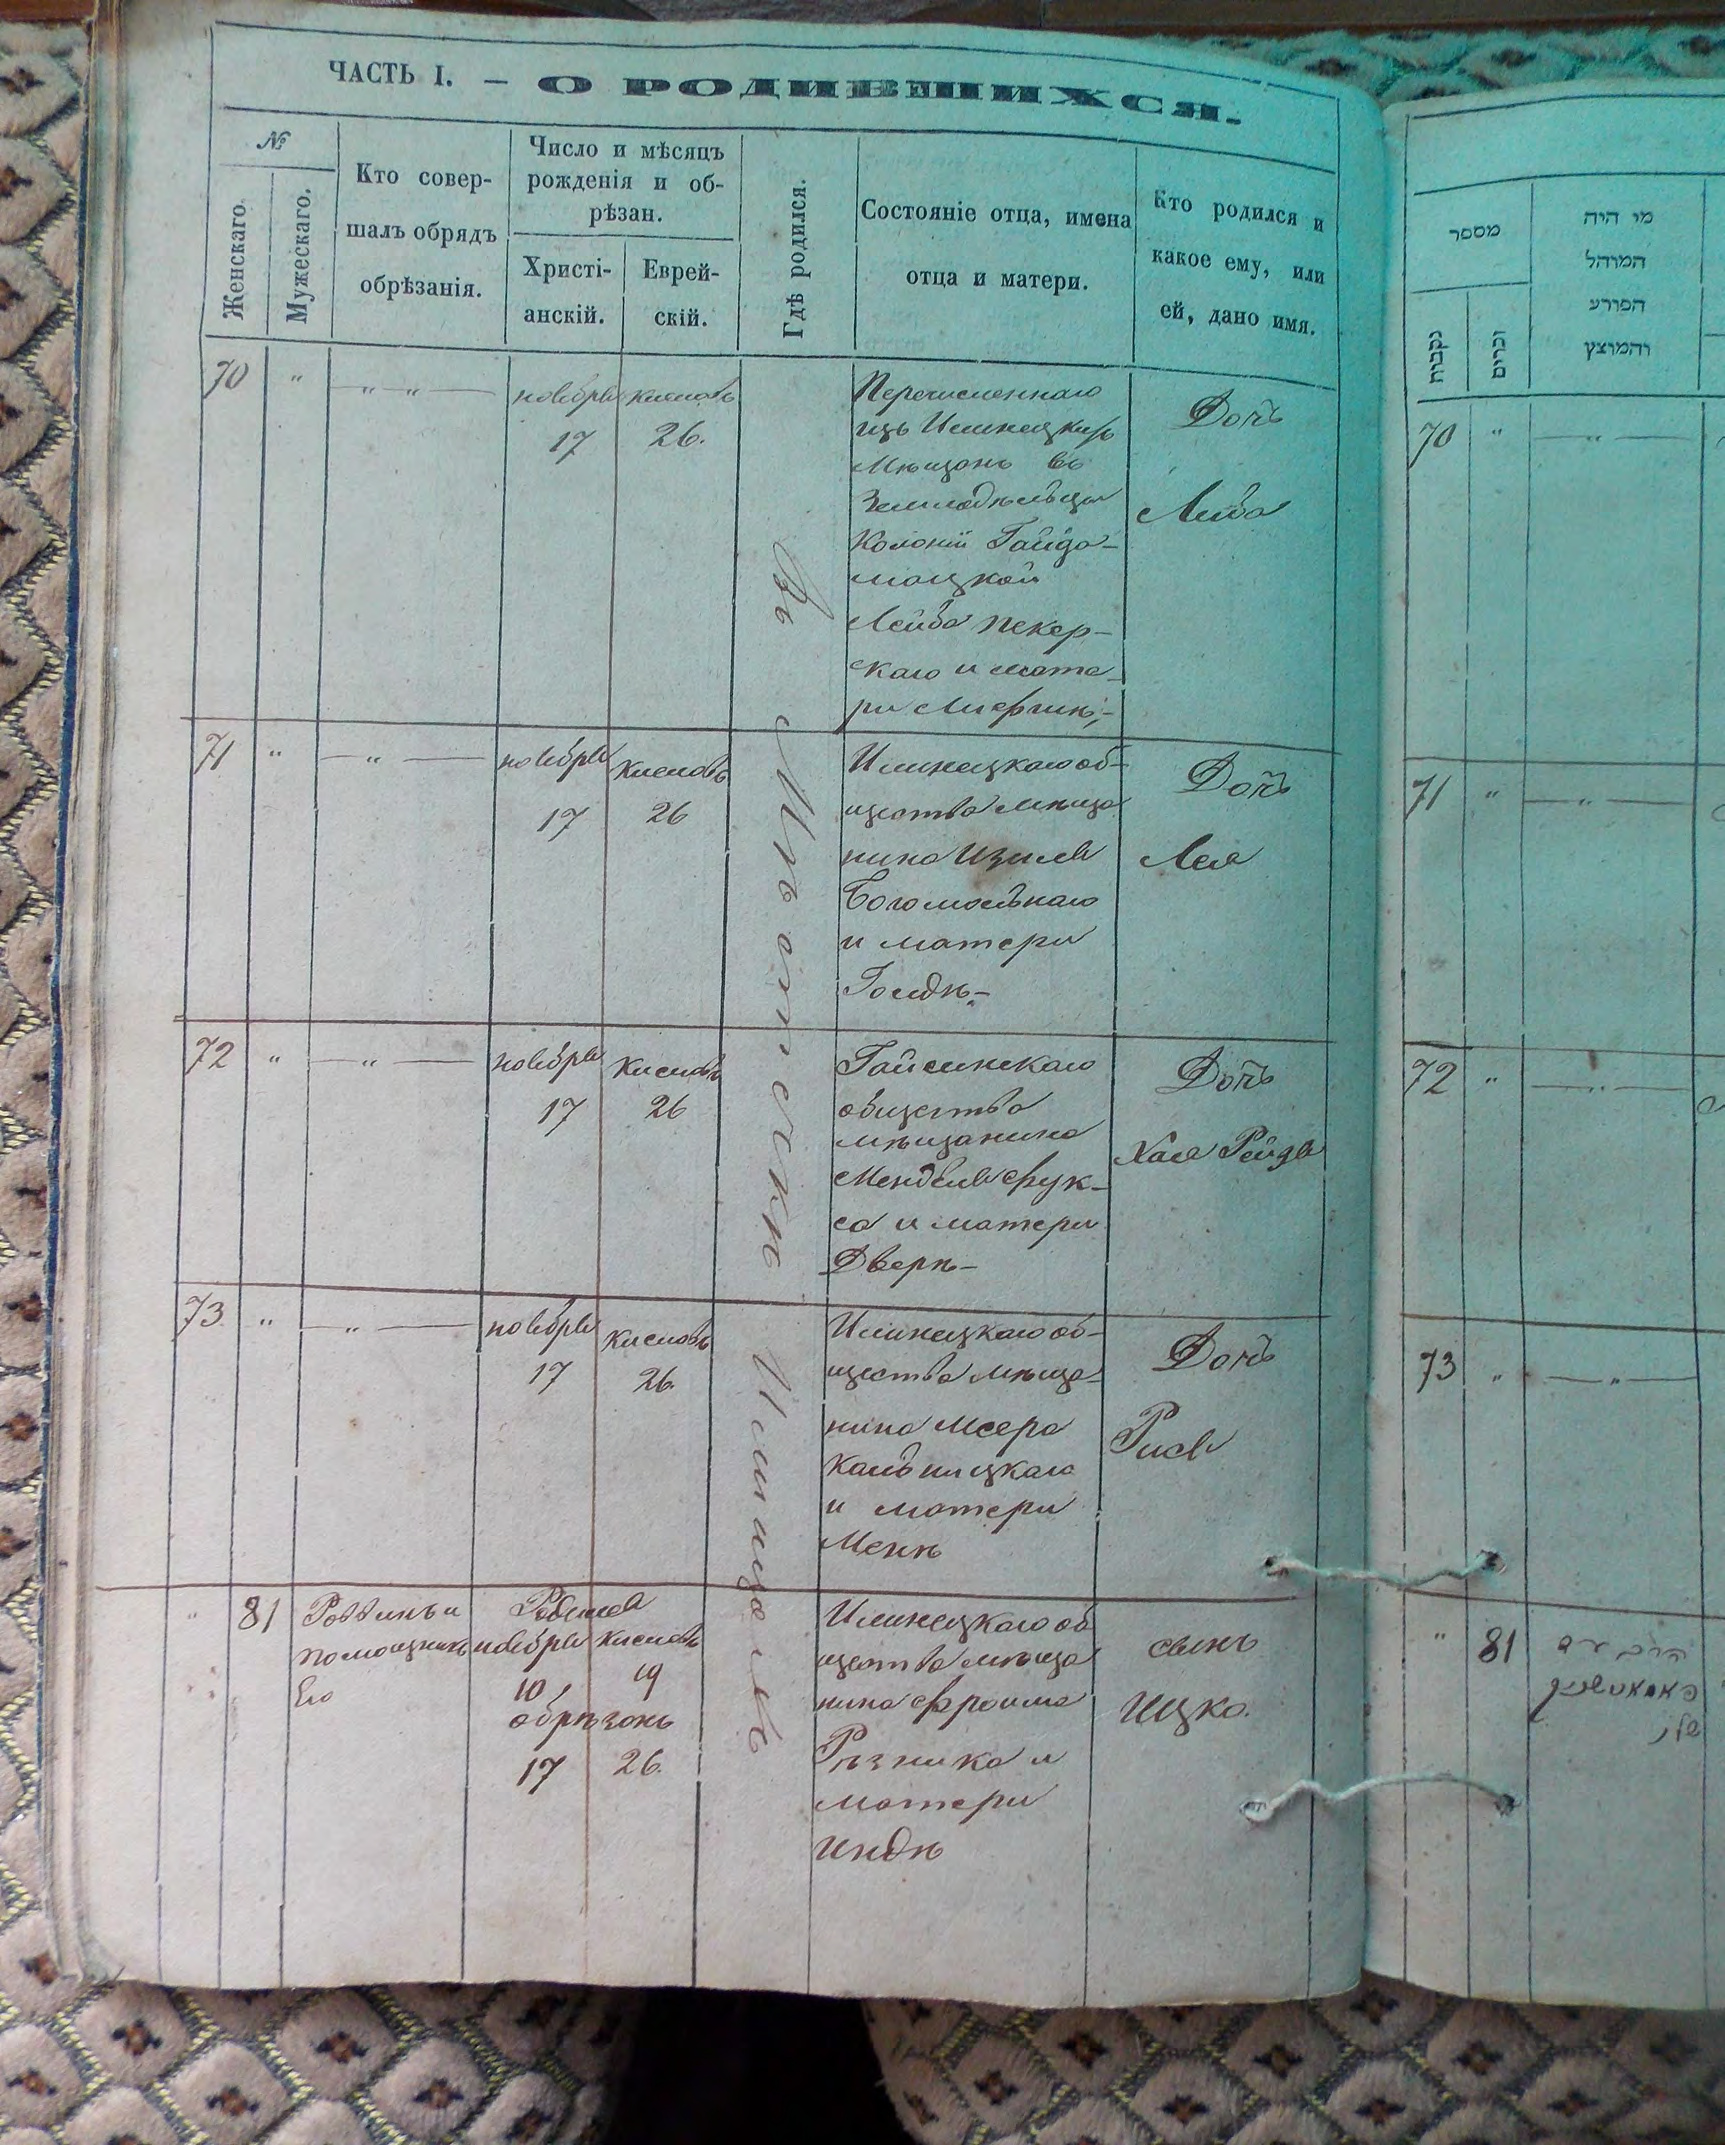 ЧАСТЬ I. — О РОДИВШИХСЯ.
№
Женскаго.
Мужескаго.
Кто совер-
шалъ обрядъ
обрѣзанія.
Число и мѣсяцъ
рожденія и об-
рѣзан.
Христі-
анскій.
Еврей-
скій.
Гдѣ родился.
Состояніе отца, имена
отца и матери.
Кто родился и
какое ему, или
ей, дано имя.
Въ Мѣстечкѣ Илинцахъ
70 " — " " — ноября Кислевъ
17 26.
Перечисленнаго
изъ Илинецкихъ
Мѣщанъ въ
Земледѣльцы
Колоніи Гайда-
мацкой
Лейба Пекер-
скаго и мате-
ри
Дочь
Либа
71 " — " — ноября Кислевъ
17 26
Илинецкаго об-
щества мѣща
нина Изиля
Богомольнаго
и матери
Голдѣ-
Дочь
Лея
72 " — " — ноября Кислевъ
17 26
Гайсинскаго
общества
мѣщанина
Менделя Фук-
са и матери
Дверѣ-
Дочь
Хая Рейзя
73 " — " — ноября Кислевъ
17 26.
Илинецкаго об-
щества мѣща-
нина Меера
Кальницкаго
и матери
Менѣ
Дочь
Рися
" 81 Раввинъ и
помощникъ
Его
Родился
ноября Кислевъ
10, 19
обрѣзанъ
17 26.
Илинецкаго об
щества мѣща
нина Фроима
Рѣзника и
матери
Индѣ
сынъ
Ицко.
מספר
נקבות
זכרים
מי היה
המוהל
הפורע
והמוצץ
70 " — " —
71 " — " —
72 " — " —
73 " — " —
" 81
שלו